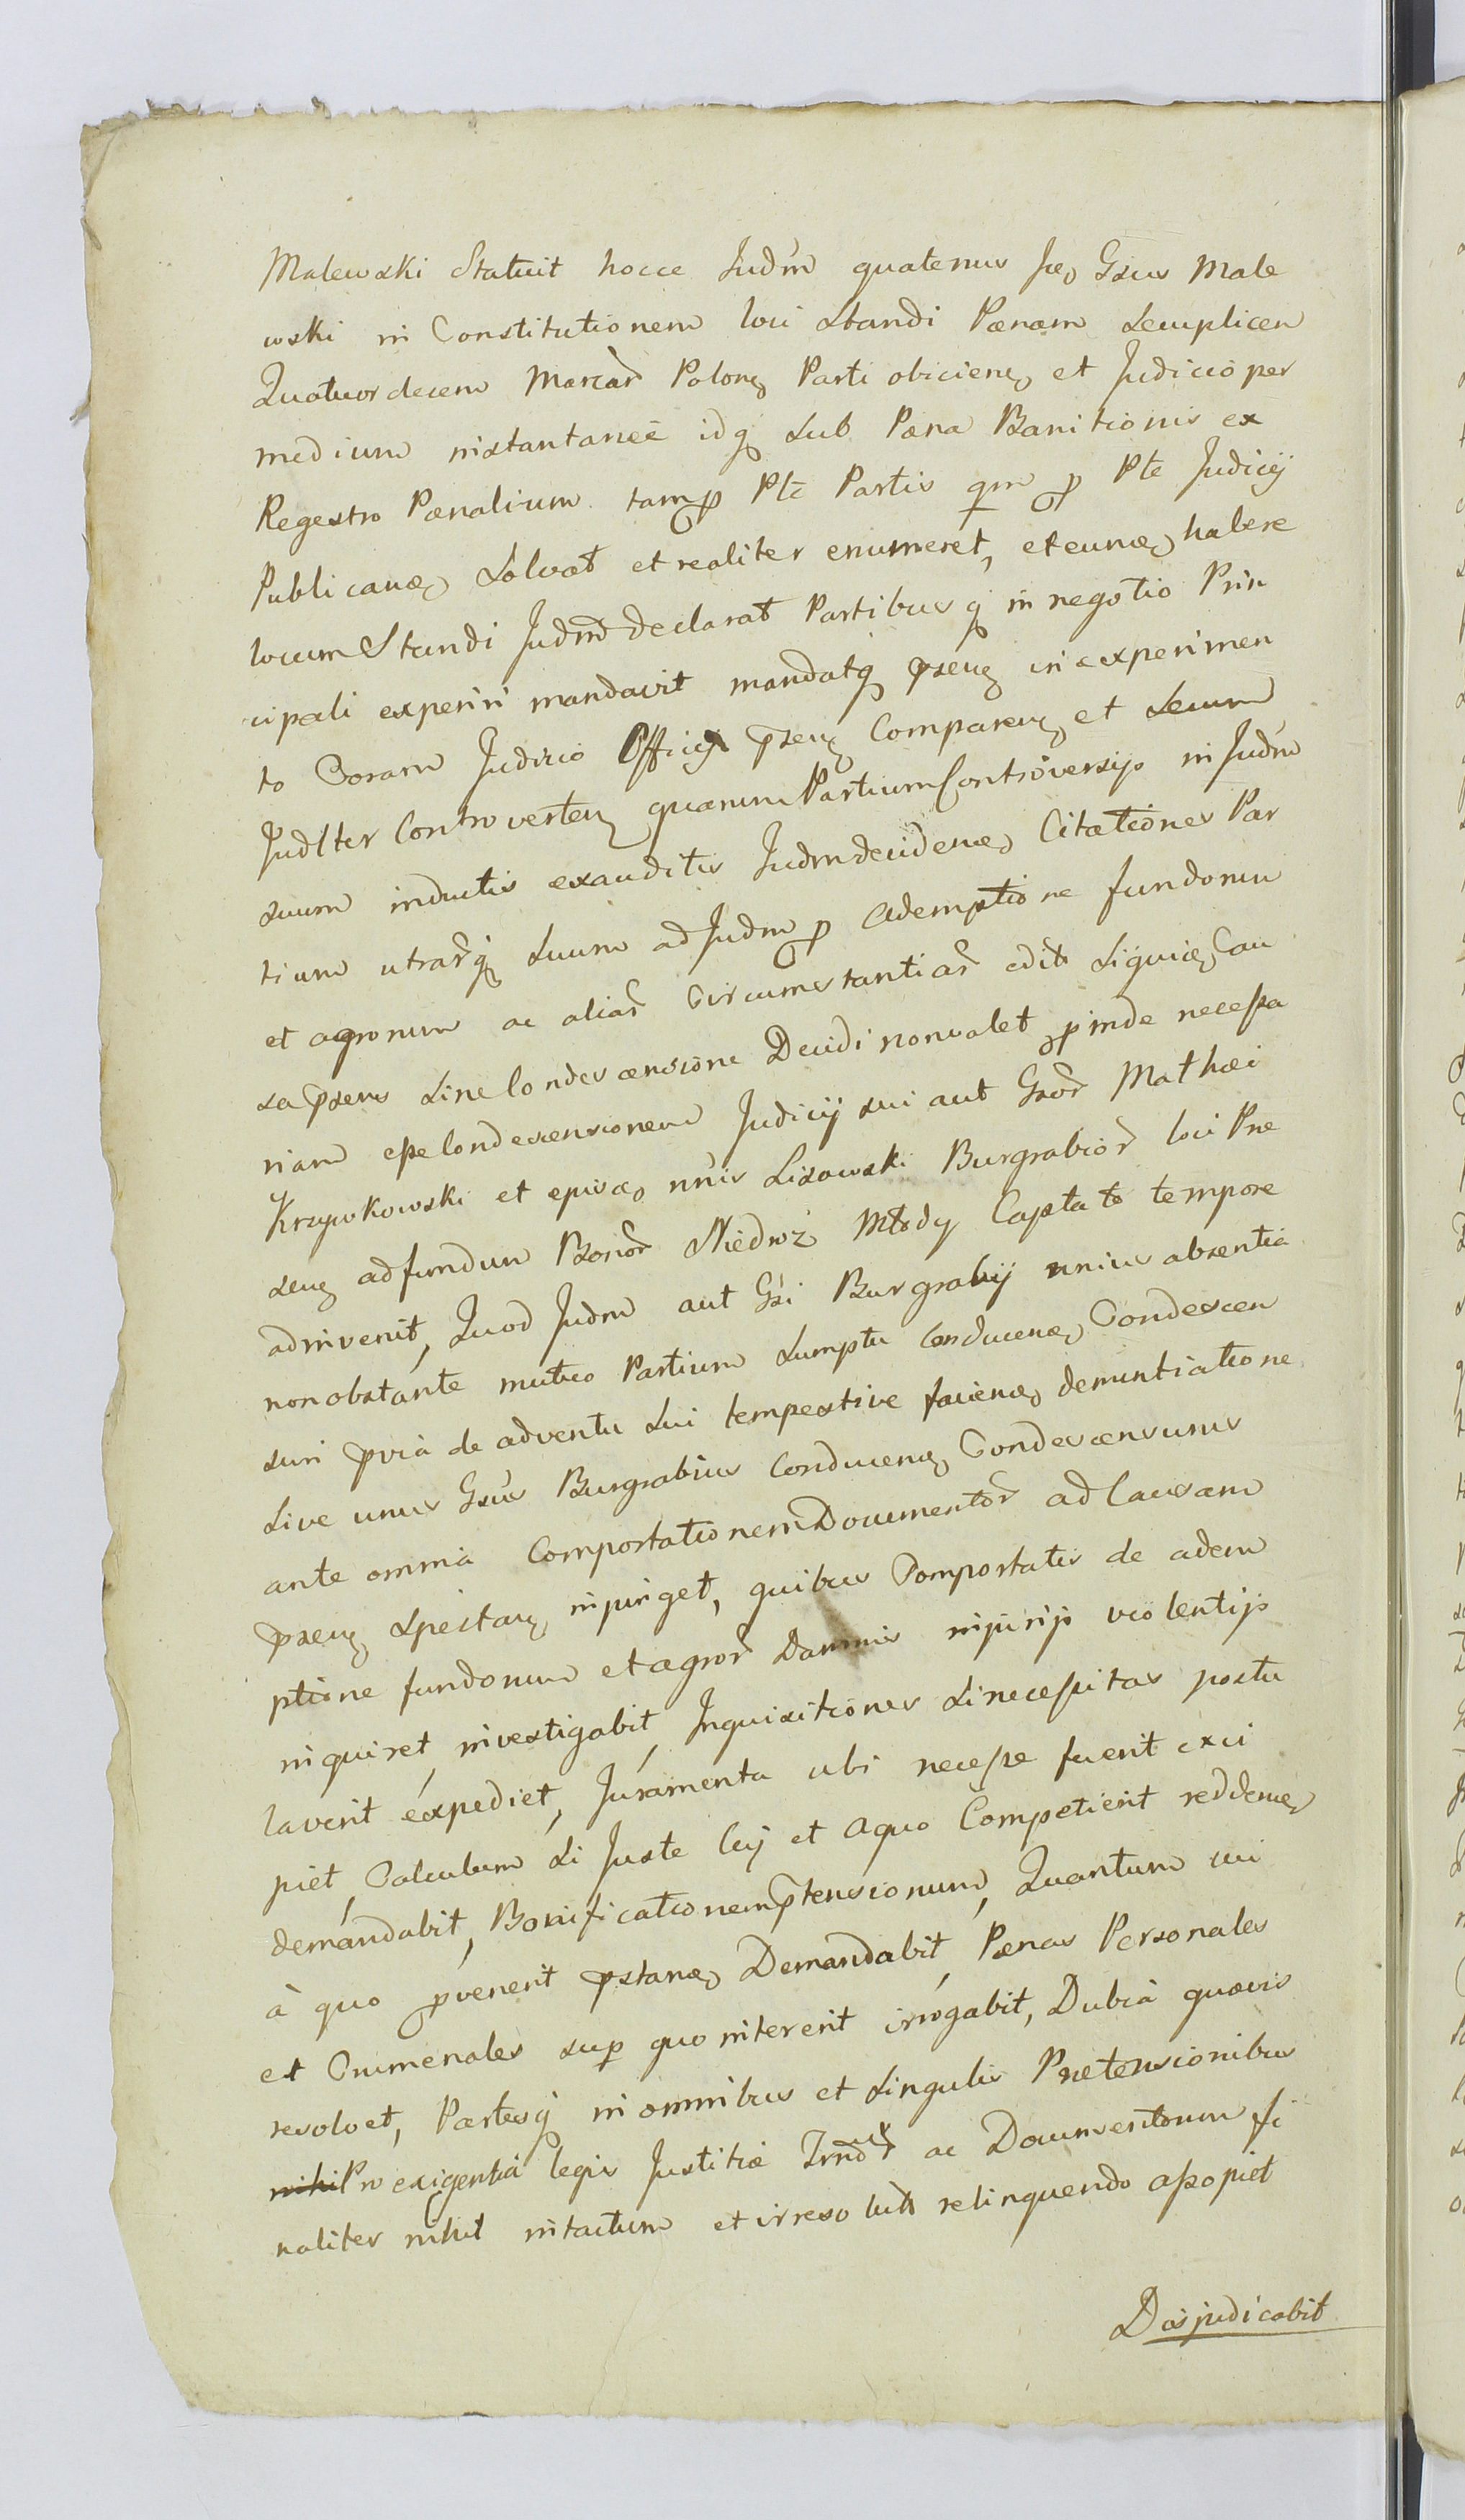 Malewski Statuit hocce Judm̃ quatenus Gsus Male
wski in Constitutionem loci Standi Pœnam Semplicem
Quatuordecem Marcar̃ Polon Parti obicien et Judicio per
medium instantaneè idq sub Pœna Banitionis ex
Regestro Pœnalium tamp Pte Partis qm p Pte Judicij
Publicanœ Solvat et realiter enumeret, eteunœ habere
locum Standi Judm declarat Partibusq in negotio Prin
cipali experiri mandavit mandatq pseng in experimen
to Coram Judicio Officij pseng Comparen et Secum
Judlter Controverten quarum Partium Controversijs in Judm̃
suum inductis exauditis Judm decidenœ Citationes Par
tium utrarq suum ad Judm p Ademptione fundorum
et agrorum ac aliar̃ Circumstantiar̃ edit Siquiœ Cau
sa psens Sine Condescensione Decidi nonvalet, pinde necessa
riam esse Condescensionem Judicij sui aut Gsor̃ Mathæi
Krzywkowski et unis Lisowski Burgrabior̃ loci Præ
sen ad fundum Bonor̃ Niedroż Młody Captato tempore
adinvenit, Quod Judm aut Gsi Burgrabij unius absentia
nonobstante mutuo Partium Sumptu Conducenœ Condescen
suri pviâ de adventu Sui tempestive facienœ denuntiatione
Sive unus Gsus Burgrabius Conducenœ Condescensurus
ante omnia Comportationem Documentor̃ ad Causam
psen Spectan injunget, quibus Comportatis de adem
ptione fundorum et agror̃ Damnis injurijs violentijs
inquiret, investigabit, Inquisitiones Sinecessitas postu
laverit expediet, Juramenta ubi necesse fuerit exci
piet, Calculum Si Juste Cuj et aquo Competierit reddenœ
demandabit, Bonificationem ptensionum, Quantum cui
à quo pvenerit pstanœ Demandabit, Pœnas Personales
et Criminales sup quo intererit irrogabit, Dubiâ quævis
resolvet, Partesq in omnibus et Singulis Prætensionibus
nihil Pro exigentiâ legis Justitiæ ac Documentorum fi
naliter nihil intactum et irresolutũ relinquendo assopiet
Dijudicabit